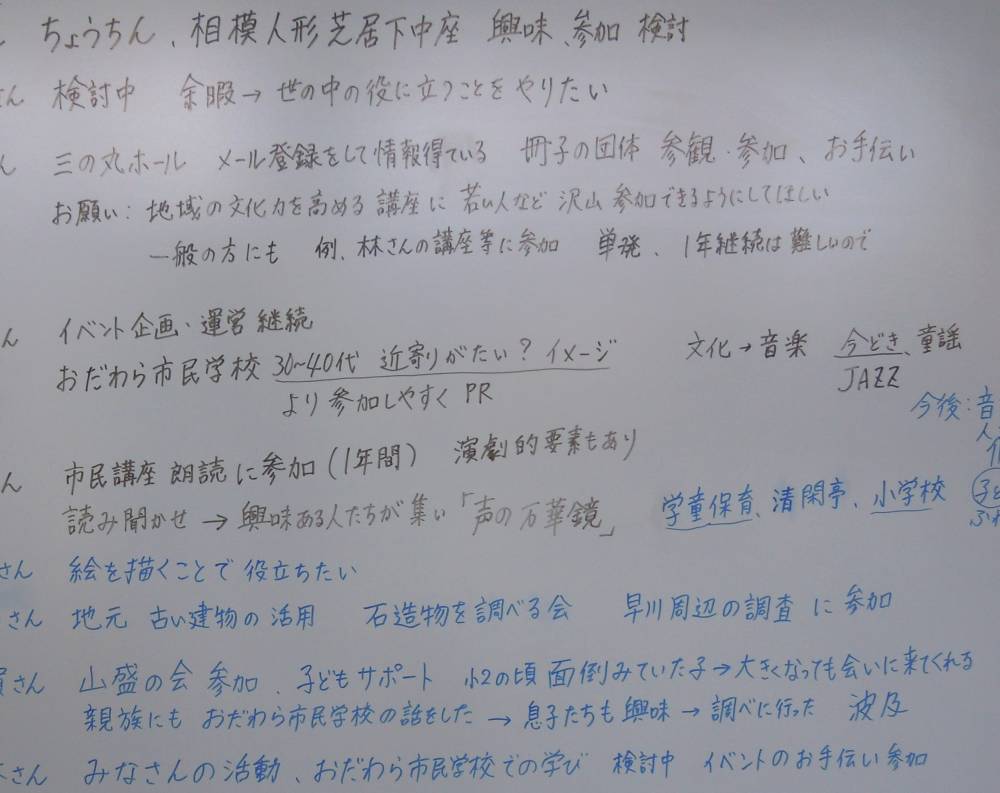 ちょうちん、相模人形芝居下中座 興味、参加 検討
さん 検討中 余暇→世の中の役に立つことをやりたい
ん 三の丸ホール メール登録をして情報得ている 冊子の団体 参観・参加、お手伝い
お願い:地域の文化力を高める講座に 若い人など 沢山 参加できるようにしてほしい
一般の方にも 例、林さんの講座等に参加 単発、1年継続は難しいので
ん イベント企画・運営 継続
おだわら市民学校 30~40代 近寄りがたい? イメージ 文化→音楽 今どき、童謡
より参加しやすく PR JAZZ
今後:音
ん 市民講座 朗読に参加(1年間) 演劇的要素もあり
読み聞かせ → 興味ある人たちが集い「声の万華鏡」 学童保育、清閑亭、小学校
さん 絵を描くことで役立ちたい
さん 地元 古い建物の活用 石造物を調べる会 早川周辺の調査に参加
さん 山盛の会 参加、子どもサポート 小2の頃面倒みていた子→大きくなっても会いに来てくれる
親族にも おだわら市民学校の話をした → 息子たちも興味 → 調べに行った 波及
さん みなさんの活動、おだわら市民学校での学び 検討中 イベントのお手伝い参加